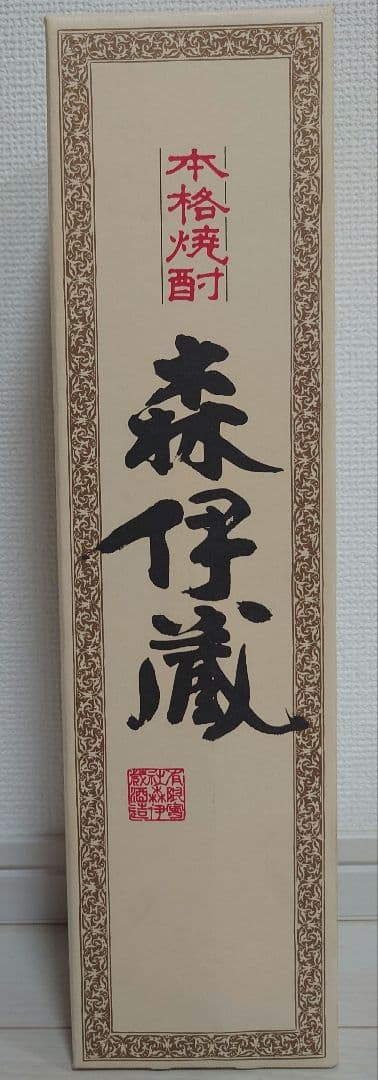 本格焼酎
森伊蔵
有限會
社森伊
蔵酒造